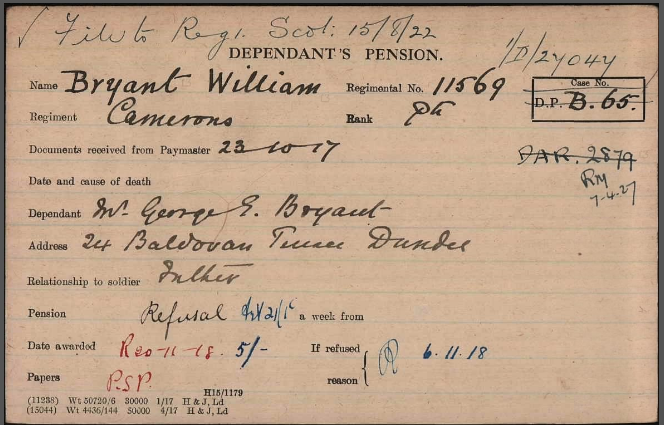 ✓ File to Regl. Scot: 15/8/22
DEPENDANT'S PENSION.
1/D/27044
Name Bryant William Regimental No. 11569
Case No.
D.P. B. 65.
Regiment Camerons Rank Pte
Documents received from Paymaster 23-10-17
D.A.R. 2879
RM
7-4-27
Date and cause of death
Dependant Mr. George E. Bryant
Address 24 Baldovan Terrace Dundee
Relationship to soldier Father
Pension Refusal a week from
Date awarded 5/- If refused 6.11.18
reason
Papers P.S.P.
H15/1179
(11238) Wt 50720/6 30000 1/17 H & J, Ld
(15044) Wt 4436/144 50000 4/17 H & J, Ld